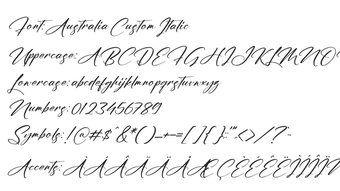 Font: Australia Custom Italic
Uppercase: ABCDEFGHIJKLMNO
Lowercase: abcdefghijklmnopqrstuvwxyz
Numbers: 0123456789
Symbols: !@#$^&*()_+-=[]{}:;"',<>/?~
Accents: ÀÁÂÃÄÅÆÇÈÉÊËÌÍÎÏÑ